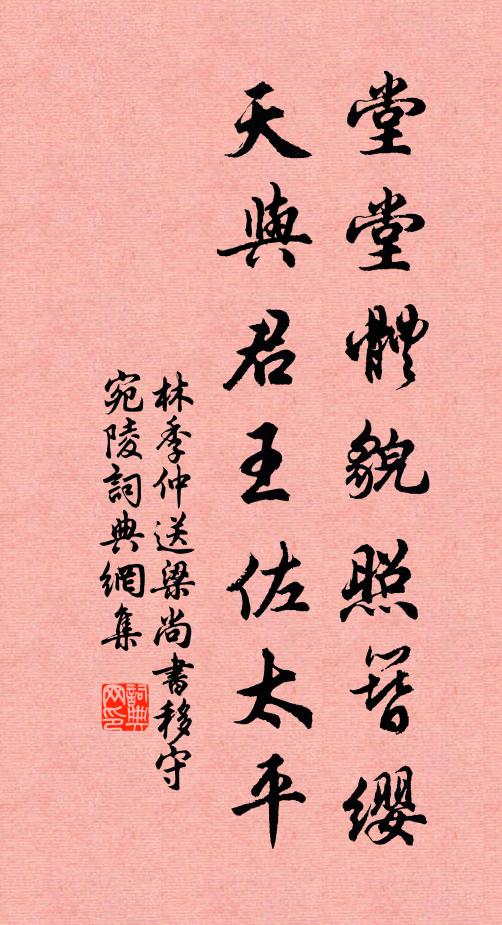 堂堂體貌照簪缨
天與君王佐太平
林季仲送梁尚書移守
宛陵詞典網集
詞典网印